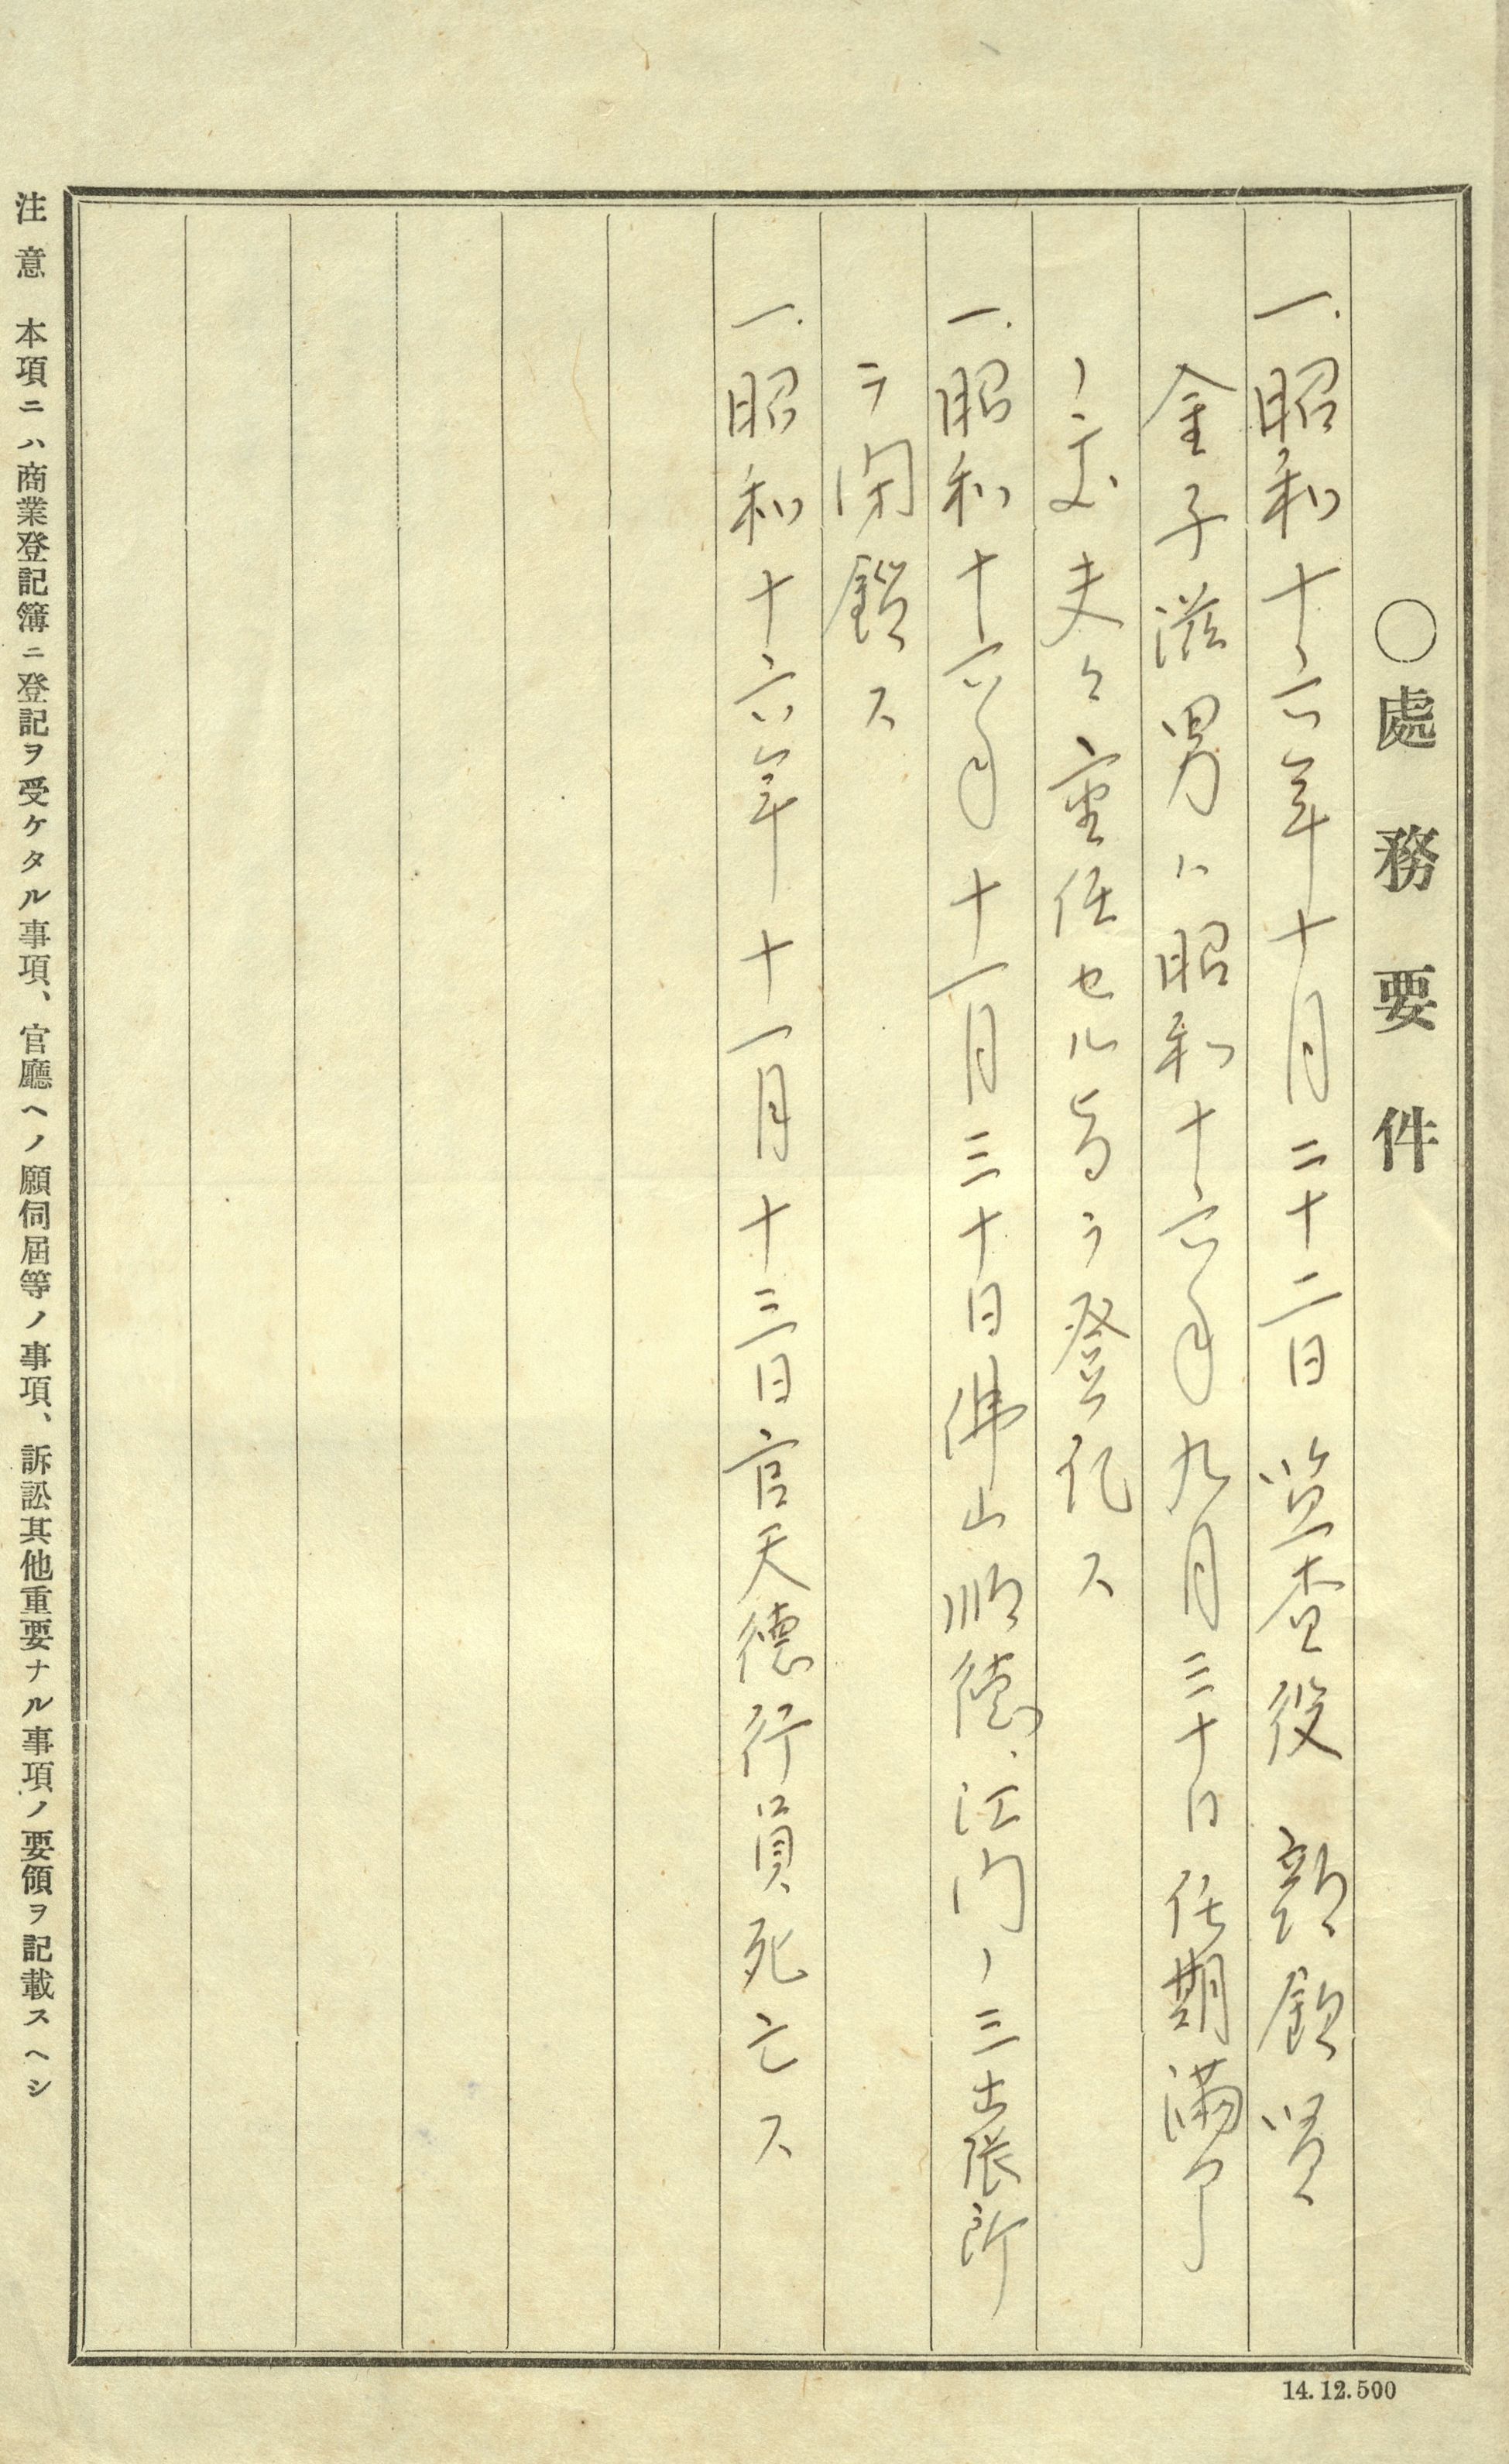 ○處務要件
一.昭和十六年十月二十二日監査役 顔錦賢
金子滋男ハ昭和十六年九月三十日任期満了
ノ処夫々重任セル旨ヲ登記ス
一.昭和十六年十一月三十日佛山順徳、江門ノ三出張所
ヲ閉鎖ス
一.昭和十六年十一月十三日官天徳行員死亡ス
注意 本項ニハ商業登記簿ニ登記ヲ受ケタル事項、官廳ヘノ願伺屆等ノ事項、訴訟其他重要ナル事項ノ要領ヲ記載スヘシ
14.12.500